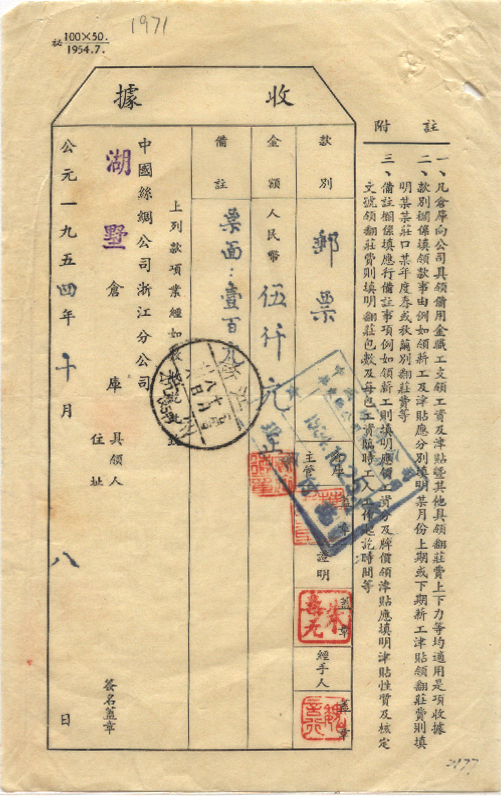 1971
100×50.
1954.7.
收據
附註
一、凡倉庫向公司具領備用金職工支領工資及津貼暨其他具領翻莊費上下力等均適用是項收據
二、款别欄係填領款事由例如領新工及津貼應分别填明某月份上期或下期新工津貼領翻莊費則填
明某某莊口某年度春或秋繭别翻莊費等
三、備註欄係填應行備註事項例如領新工則填明應領工資分及牌價領津貼應填明津貼性質及核定
文號領翻莊費則填明翻莊包數及每包工資臨時工人工作起訖時間等
款别 郵票
金額 人民幣 伍仟元
備註 票面：壹百元
主管 蓋章
證明 蓋章
經手人 蓋章
朱
上列款項業經如數
中國絲綢公司浙江分公司
湖墅倉庫 具領人
住址
簽名蓋章
公元一九五四年十月八日